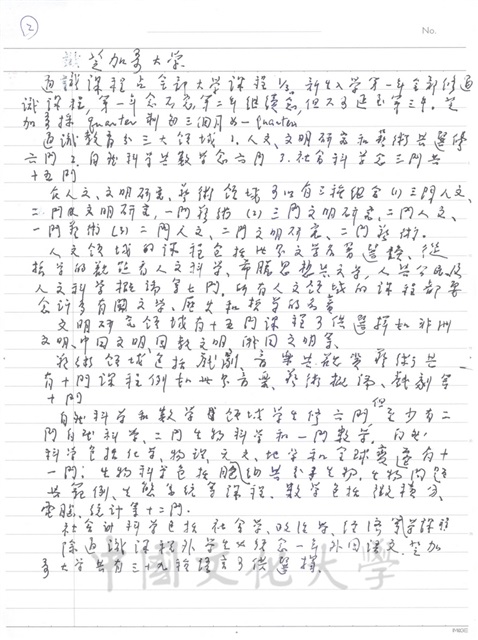 ②
No.
芝加哥大學
通識課程占全部大學課程1/3。新生入學第一年全部修通
識課程,第一年念不完第二年繼續念,但不可延至第三年。芝
加哥採quarter制為三個月為一quarter
通識教育分三大領域 1.人文、文明研究和藝術共選修
六門 2.自然科學共數學念六門 3.社會科學念三門共
十五門
在人文、文明研究、藝術領域可以有三種組合(1)三門人文、
二門文明研究、一門藝術 (2)三門文明研究、二門人文、
一門藝術 (3)二門人文、二門文明研究、二門藝術。
人文領域的課程包括世界文學名著選讀、從
哲學的觀點看人文科學、希臘思想與文學、人與公民及
人文科學概論等七門,所有人文領域的課程都要
會計有關文學、歷史和哲學的名著
文明研究領域有十五門課程可供選擇如非洲
文明、中國文明、回教文明、猶國文明等。
藝術領域包括戲劇、音樂與視覺藝術共
有十門課程例如世界音樂、藝術概論、戲劇等
十門
自然科學和數學領域學生修六門,但至少有二
門自然科學、二門生物科學和一門數學,自然
科學包括化學、物理、天文、地學和全球變遷有十
一門;生物科學包括胞細與分子生物,生物問題
與範例、生態系統等課程、數學包括微積分、
電腦,統計等十二門。
社會科學包括社會學、政治學、經濟學等課程
除通識課程外學生必須念一年外國語文,芝加
哥大學共有三十九種語言可供選擇。
中國文化大學